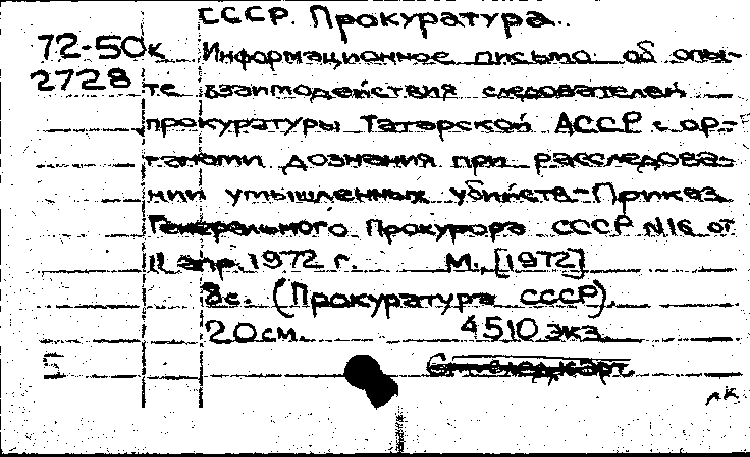 СССР. Прокуратура.
72-50к Информационное письмо об опы-
2728 те взаимодействия следователей
прокуратуры Татарской АССР с ор-
ганами дознания при расследова-
нии умышленных убийств - Приказ
Генерального Прокурора СССР №16 от
11 апр. 1972 г. М., [1972]
8с. (Прокуратура СССР).
20 см. 4510 экз.
5
лк